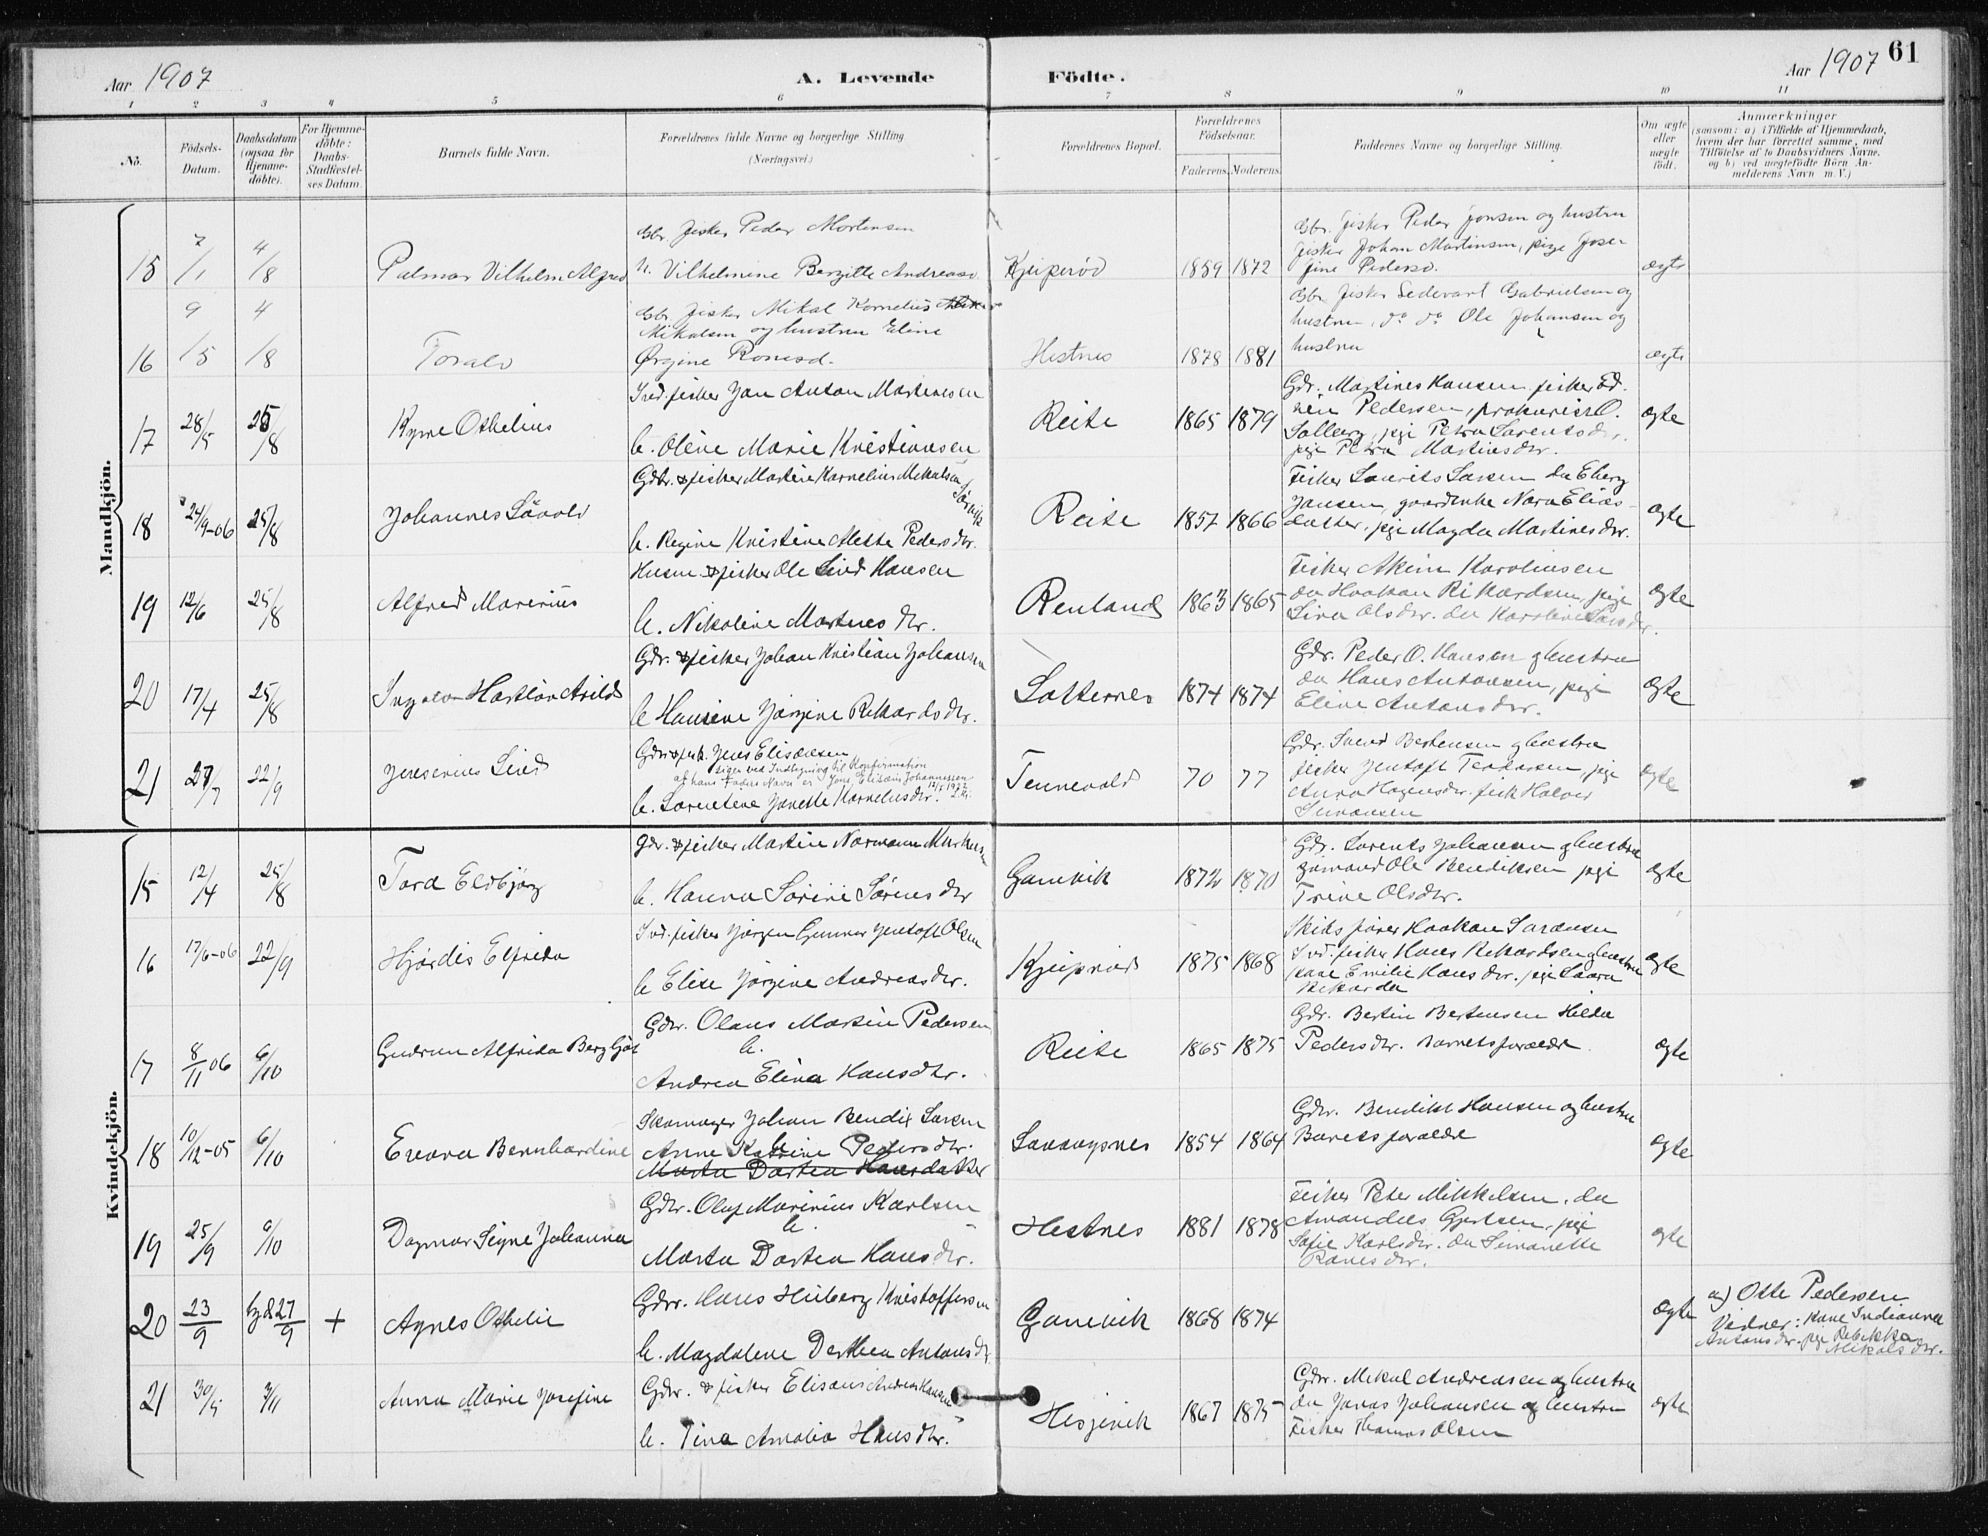 Aar 1907
A. Levende
Födte.
Aar 1907
61
1 2 3 4 5 6 7 8 9 10 11
No.
Födsels-Datum.
Daabsdatum (ogsaa for Hjemme-döbte).
For Hjemme-döbte: Daabs-Stadfæstel-ses Datum.
Barnets fulde Navn.
Forældrenes fulde Navne og borgerlige Stilling (Næringsvei)
Forældrenes Bopæl.
Forældrenes Födselsaar.
Faderens. Moderens.
Faddernes Navne og borgerlige Stilling.
Om ægte eller uægte födt.
Anmærkninger
(saasom: a) i Tilfælde af Hjemmedaab, hvem der har forrettet samme, med Tilföielse af to Daabsvidners Navne, og b) ved uægtefödte Börn An-melderens Navn m. V.)
Mandkjön.
15 7/1 4/8 Palmar Vilhelm Alfred
Gbr. fisker Peder Mortensen
h. Vilhelmine Bergitte Andreasd.
Kjeiperød 1859 1872
Gbr. fisker Peder Jonsen og hustru
fisker Johan Martinsen, pige Jose-
fine Pedersd.
ægte
16 9/5 4/8 Toralv
Gbr. fisker Mikal Kornelius
Mikalsen og hustru Eline
Ørgine Ronesd.
Hestnes 1878 1881
Gbr. fisker Sedevart Gabrielsen og
hustru, do do Ole Johansen og
hustru
ægte
17 28/5 25/8 Kyrre Othelius
Ind. fisker Jan Anton Martinesen
h. Oline Marie Kristiansen
Reite 1865 1879
Gdr. Martines Hansen fisker Ed-
vin Pedersen, prokurist O.
Solberg, pige Petra Sørensdr.,
pige Petra Martinsdr.
ægte
18 24/9-06 25/8 Johannes Låvold
Gdbr. & fisker Martin Kornelius Mikalsen
h. Regine Kristine Mette Pedersdtr.
Reite 1857 1866
Fisker Laurits Larsen do Eberg
Jansen, gaardenke Nora Elias-
datter, pige Magda Martinesdtr.
ægte
19 12/6 25/8 Alfred Marenius
Husm. & fisker Ole Lind Hansen
h. Nikoline Martnesdtr.
Renland 1863 1865
Fisker Akim Karolinsen
do Haakon Rikardsen, pige
Lina Olsdtr. do Karoline Larsdtr.
ægte
20 17/4 25/8 Ingolav Hartløv Arild
Gdr. & fisker Johan Kristian Johansen
h Hansine Jørgine Rikardsdtr.
Lotternes 1874 1874
Gdr. Peder O. Hansen og hustru
do Hans Antonsen, pige
Eline Antonsdtr.
ægte
21 27/7 22/9 Jensenius Lind
Gdr. & fisk. Jens Elisæusen
siger ved Indtegning til Konfirmation
at hans Faders Navn er Jens Elisæus Johannessen
h. Lorentine Janette Kornelius dtr.
Tennevold 70 77
Gdr. Svend Berthensen og hustru
fisker Jentoft Teodorsen, pige
Anna Hagensdtr. fisk Halvor
Simonsen
ægte
Kvindekjön.
15 12/4 25/8 Tora Eldbjørg
Gdr. & fisker Martin Normann Markussen
h. Hanna Sørine Sørensdtr
Gamvik 1872 1870
Gdr. Lorents Johansen og hustru
gjæmand Ole Bendiksen pige
Trine Olsdtr.
ægte
16 17/6-06 22/9 Hjørdis Elfrida
Ind. fisker Jørgen Gunnar Jentoft Olsen
h Elise Jørgine Andreasdtr.
Kjeiprød 1875 1868
Skibsfører Haakon Sørensen
Ind. fisker Hans Rikardsen og hustru
kone Emilie Hansdtr. pige Laura
Rikarda
ægte
17 8/11 06 6/10 Gudrun Alfrida Bergljot
Gdr. Olaus Martin Pedersen
h.
Andrea Elina Hansdtr.
Reite 1865 1875
Gdr. Bertin Bertensen Hilda
Pedersdtr. Barnets forældre
ægte
18 10/12-05 6/10 Enora Bernhardine
Skomager Johan Bendix Larsen
Anne Katrine Pedersdtr.
Marta Dortea Hansdatter
1854 1864
Gdr. Bendikt Hansen og hustru
Barnets forældre
ægte
19 25/9 6/10 Dagmar Signe Johanna
Gdr. Oluf Marinius Karlsen
h.
Marta Dortea Hansdtr.
Hestnes 1881 1878
Fisker Peter Mikkelsen, do
Amandus Gjertsen, pige
Sofie Karlsdtr. do Simonette
Ranesdtr.
ægte
20 23/9 27/9 + Agnes Othelie
Gdr. Hans Hilberg Kristoffersen
h. Magdalene Dorthea Antonsdtr
Gamvik 1868 1874
ægte
a) Otte Pedersen
Vidner: kone Indianna
Antonsdtr. pige Rebekka
Nikolsdtr.
21 30/5 3/11 Anna Marie Josefine
Gdr. & fisker Elisæus Andreas Hansen
h. Tina Amalia Hansdtr.
Hesjevik 1867 1875
Gdr. Mikal Andreasen og hustru
do Jonas Johansen og hustru
Fisker Thomas Olsen
ægte